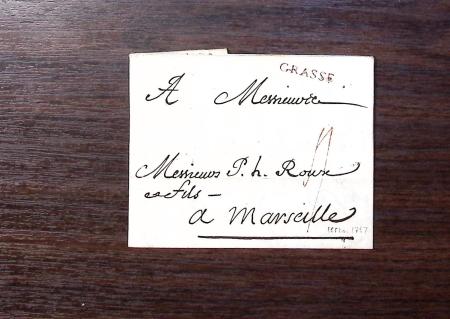 GRASSE
A Messieurs
Messieurs P. h. Roux
et fils —
a Marseille
1757